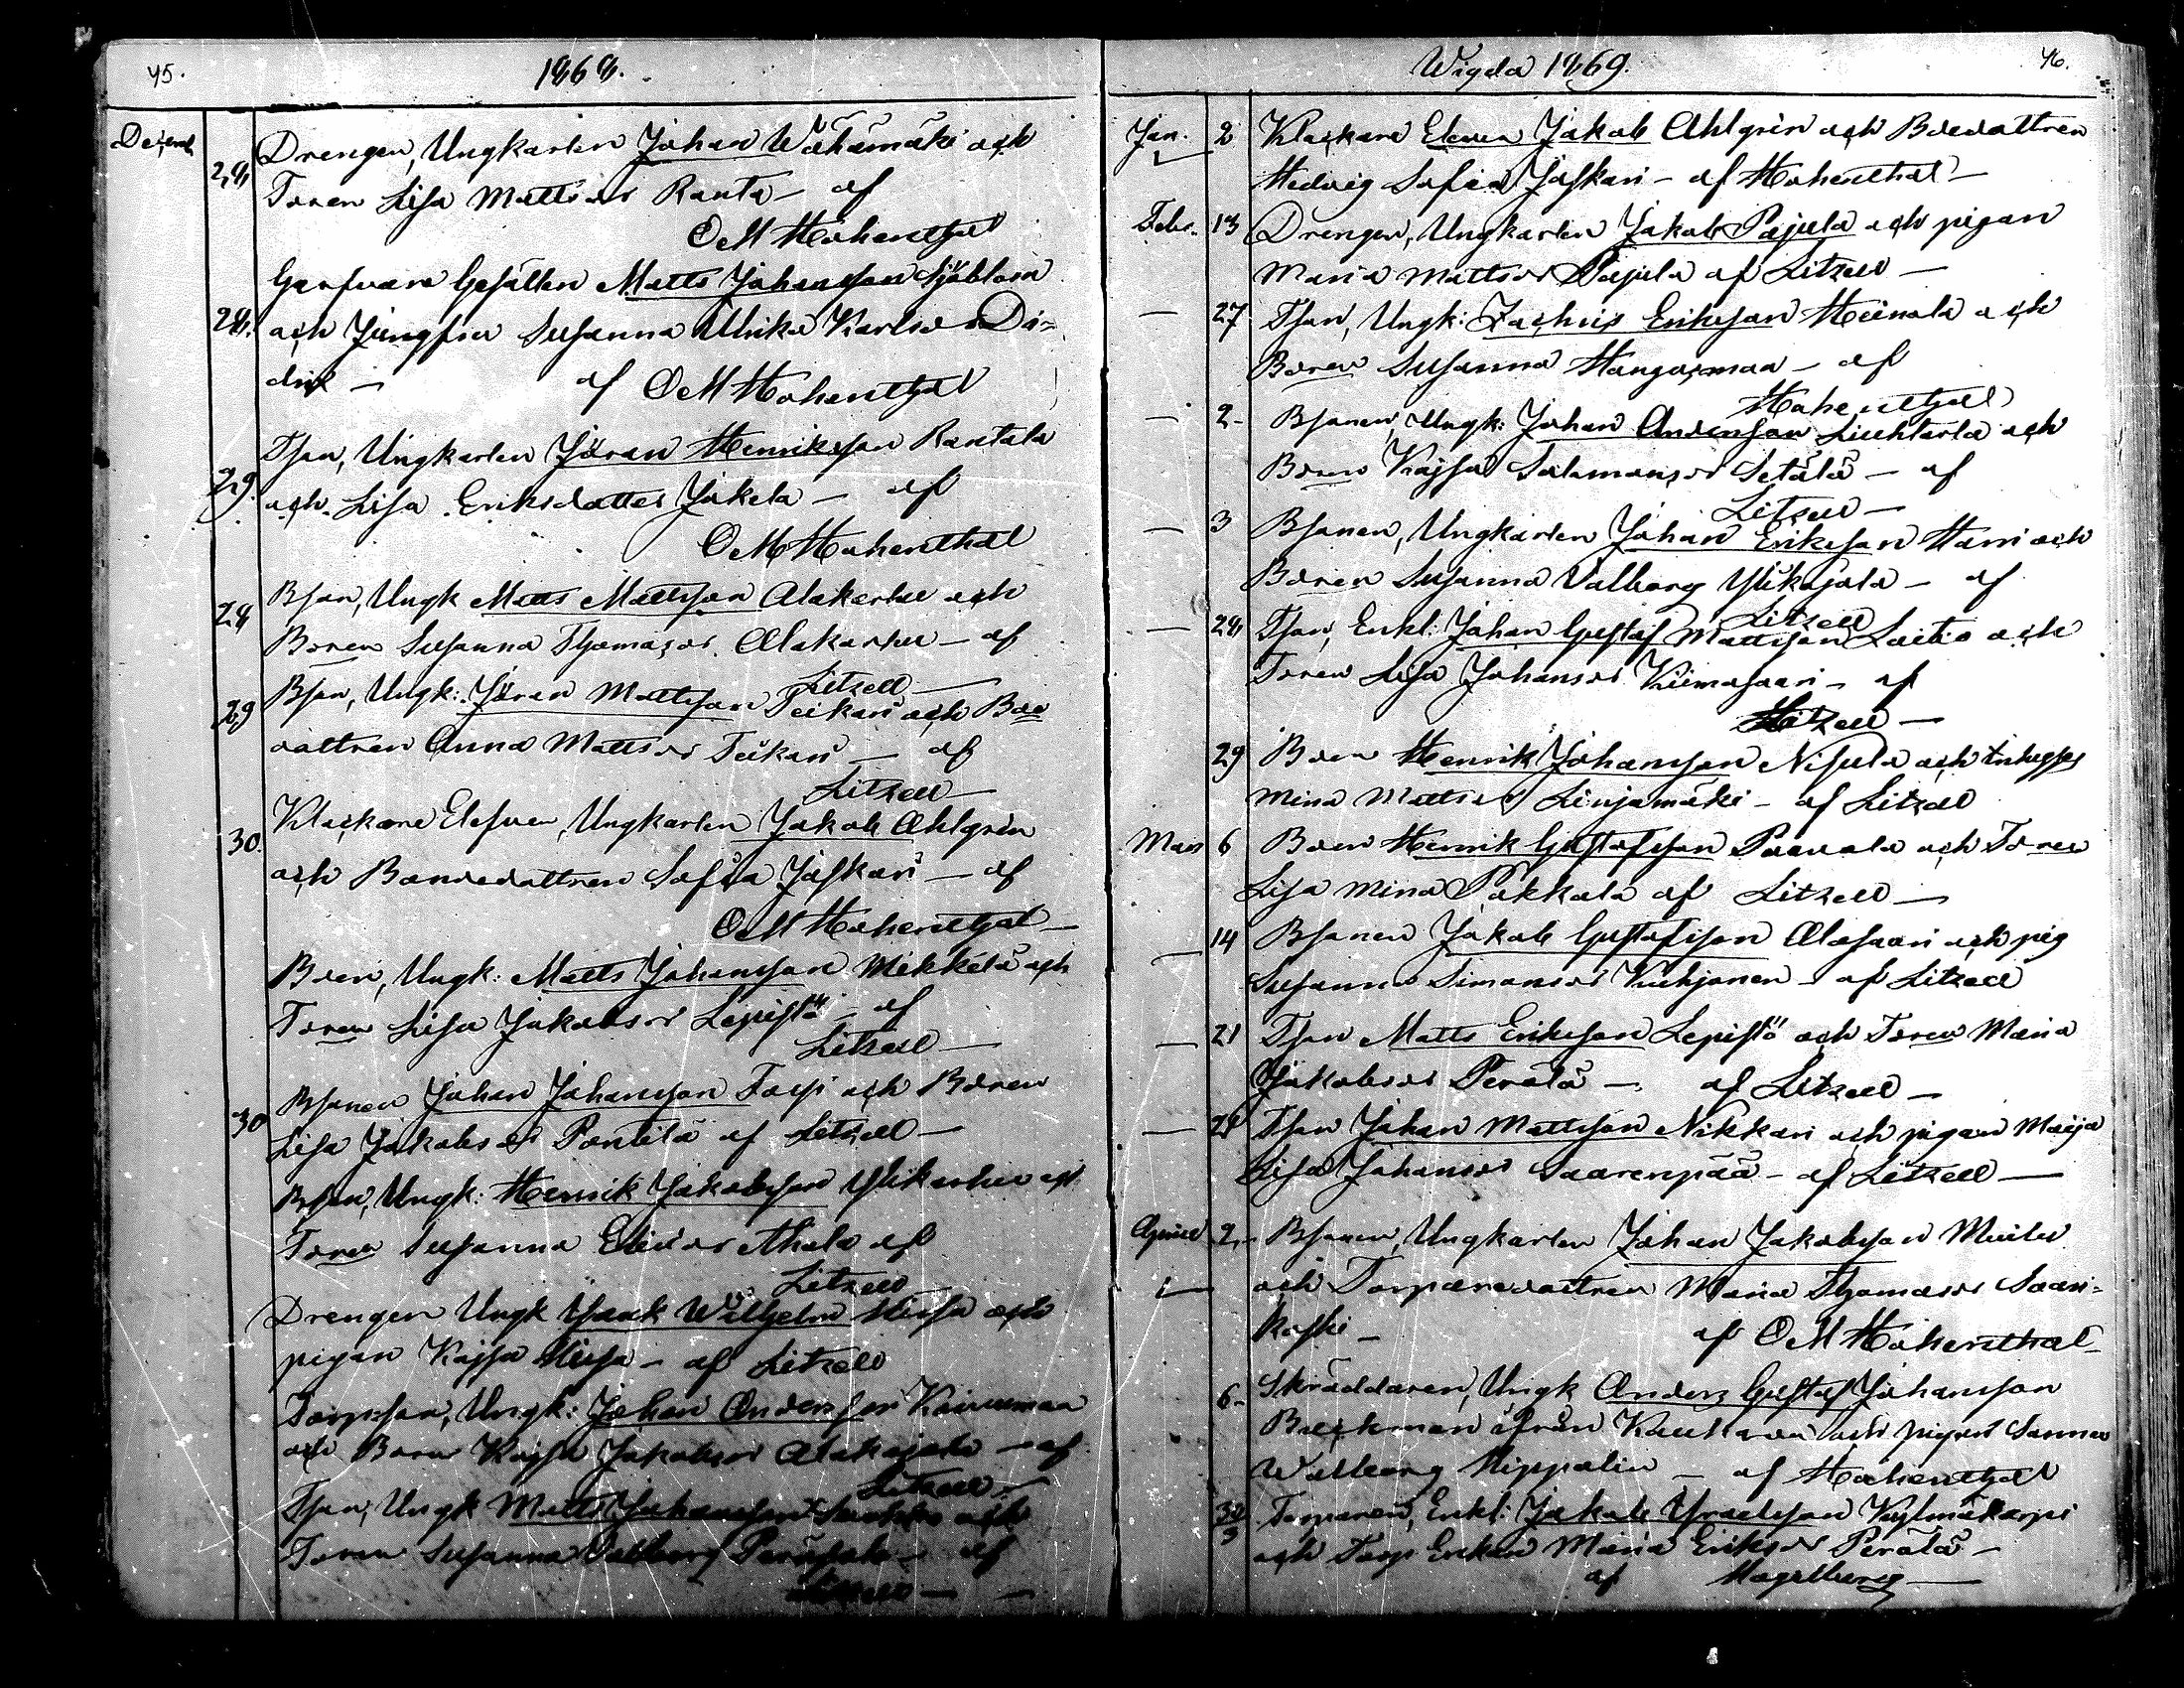 45.
1868.
Decemb
28. Drengen, Ungkarlen Johan Wähämäki och
Toren Lisa Mattsdr Ranta – af
OM Hohenthal
28. Garfvare Gesällen Matts Johansson Sjöblom
och Jungfru Susanna Ulrika Karlsdr Di-
drik – af OM Hohenthal
29. Tson, Ungkarlen Jöran Henriksson Rantala
och Lisa Eriksdotter Jäkelä – af
OM Hohenthal
28 Bson, Ungk Matts Mattsson Alakarhu och
Boren Susanna Thomasdr. Alakarhu – af
Litzell –
29 Bson, Ungk: Jöran Mattsson Teikari och Bde
dottren Anna Mattsdr Teikari – af
Litzell –
30. Klockare Elefven, Ungkarlen Jakob Ahlgrén
och Bondedottren Sofia Jåskari – af
OM Hohenthal –
Bden, Ungk: Matts Johansson Mikkelä och
Toren Lisa Jakobsdr Lepistö – af
Litzell –
30 Bsonen Johan Johansson Torpi och Bdren
Lisa Jakobsdr Pentilä af Litzell –
Bson, Ungk: Henrik Jakobsson Ylikarhu och
Toren Susanna Eliedr Ahola af
Litzell
Drengen Ungk Isaak Wilhelm Hissa och
pigan Kajsa Hissa – af Litzell
Torpson, Ungk: Johan Andersson Kainumaa
och Boren Kajsa Jakobsdr Alakajala – af
Litzell –
Tson, Ungk Matts Johansson och
Toren Susanna Valborg – af
Litzell –
Wigda 1869.
46.
Jan. 2 Klockare Eleven Jakob Ahlgrén och Bdedottren
Hedvig Sofia Jåskari – af Hohenthal –
Febr. 13 Drengen, Ungkarlen Jakob Pajula och pigan
Maria Mattsdr Pajula af Litzell –
– 27 Tson, Ungk: Zachris Eriksson Heinola och
Bdren Susanna Hangasmaa – af
Hohenthal
– 2– Bsonen, Ungk: Johan Andersson Liuhtarla och
Bdren Kajsa Salomonsdr Setälä – af
Litzell –
– 3 Bsonen, Ungkarlen Johan Eriksson Harri och
Bdren Susanna Valborg Ylikojola – af
Litzell
– 28 Tson, Enkl: Johan Gustaf Mattsson Laitio och
Toren Lisa Johansdr Kiimasaari – af
Litzell –
29 Bden Henrik Johansson Nisula och Inhyses
Mina Mattsdr Linjamäki – af Litzell
Mars 6 Bden Henrik Gustafsson Paavola och Toren
Lisa Mina Pakkala af Litzell –
– 14 Bsonen Jakob Gustafsson Alasaari och pig
Susanna Simonsdr Kuhjonen – af Litzell
– 21 Tson Matts Eriksson Lepistö och Toren Maria
Jakobsdr Perälä – af Litzell –
– 28 Tson Johan Mattsson Nikkari och pigan Maija
Lisa Johansdr Saarenpää – af Litzell –
April 2– Bsonen, Ungkarlen Johan Jakobsson Muilu
– och Torparedottren Maria Thomasdr Saari-
koski – af OM Hohenthal –
6– Skräddaren, Ungk Anders Gustaf Johansson
Backman ifrån Kauhava och pigan Sanna
Walborg Hippolin – af Hohenthal
30/3 Torparen, Enkl: Jakob Israelsson Kylmäkorpi
och Torp Enkan Maria Eriksdr Perälä –
af Hagelberg –